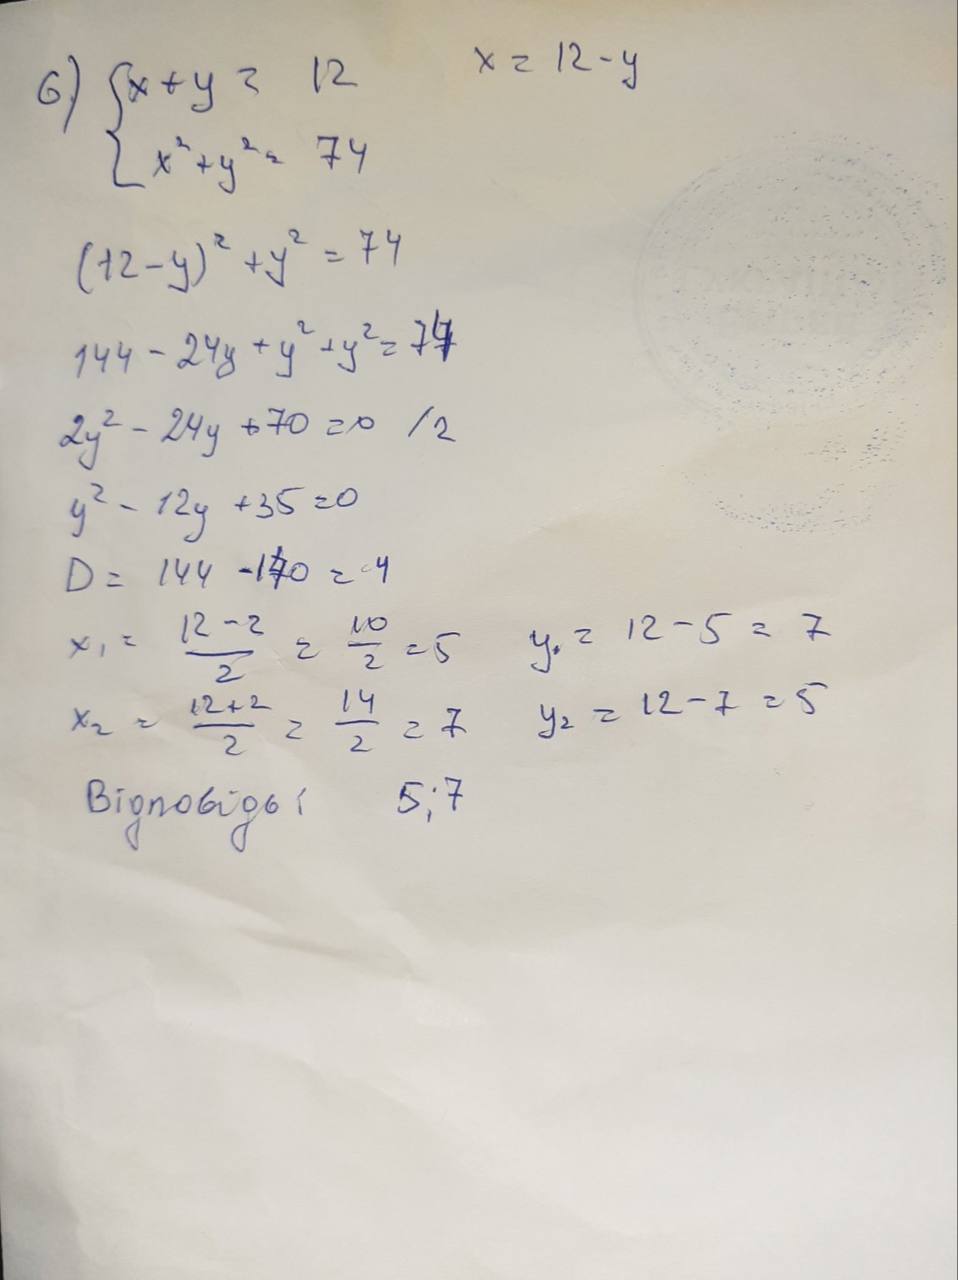 6) { x + y = 12 x = 12 - y
x² + y² = 74
(12 - y)² + y² = 74
144 - 24y + y² + y² = 74
2y² - 24y + 70 = 0 /2
y² - 12y + 35 = 0
D = 144 - 140 = 4
x₁ = (12 - 2)/2 = 10/2 = 5 y₁ = 12 - 5 = 7
x₂ = (12 + 2)/2 = 14/2 = 7 y₂ = 12 - 7 = 5
Відповідь: 5; 7